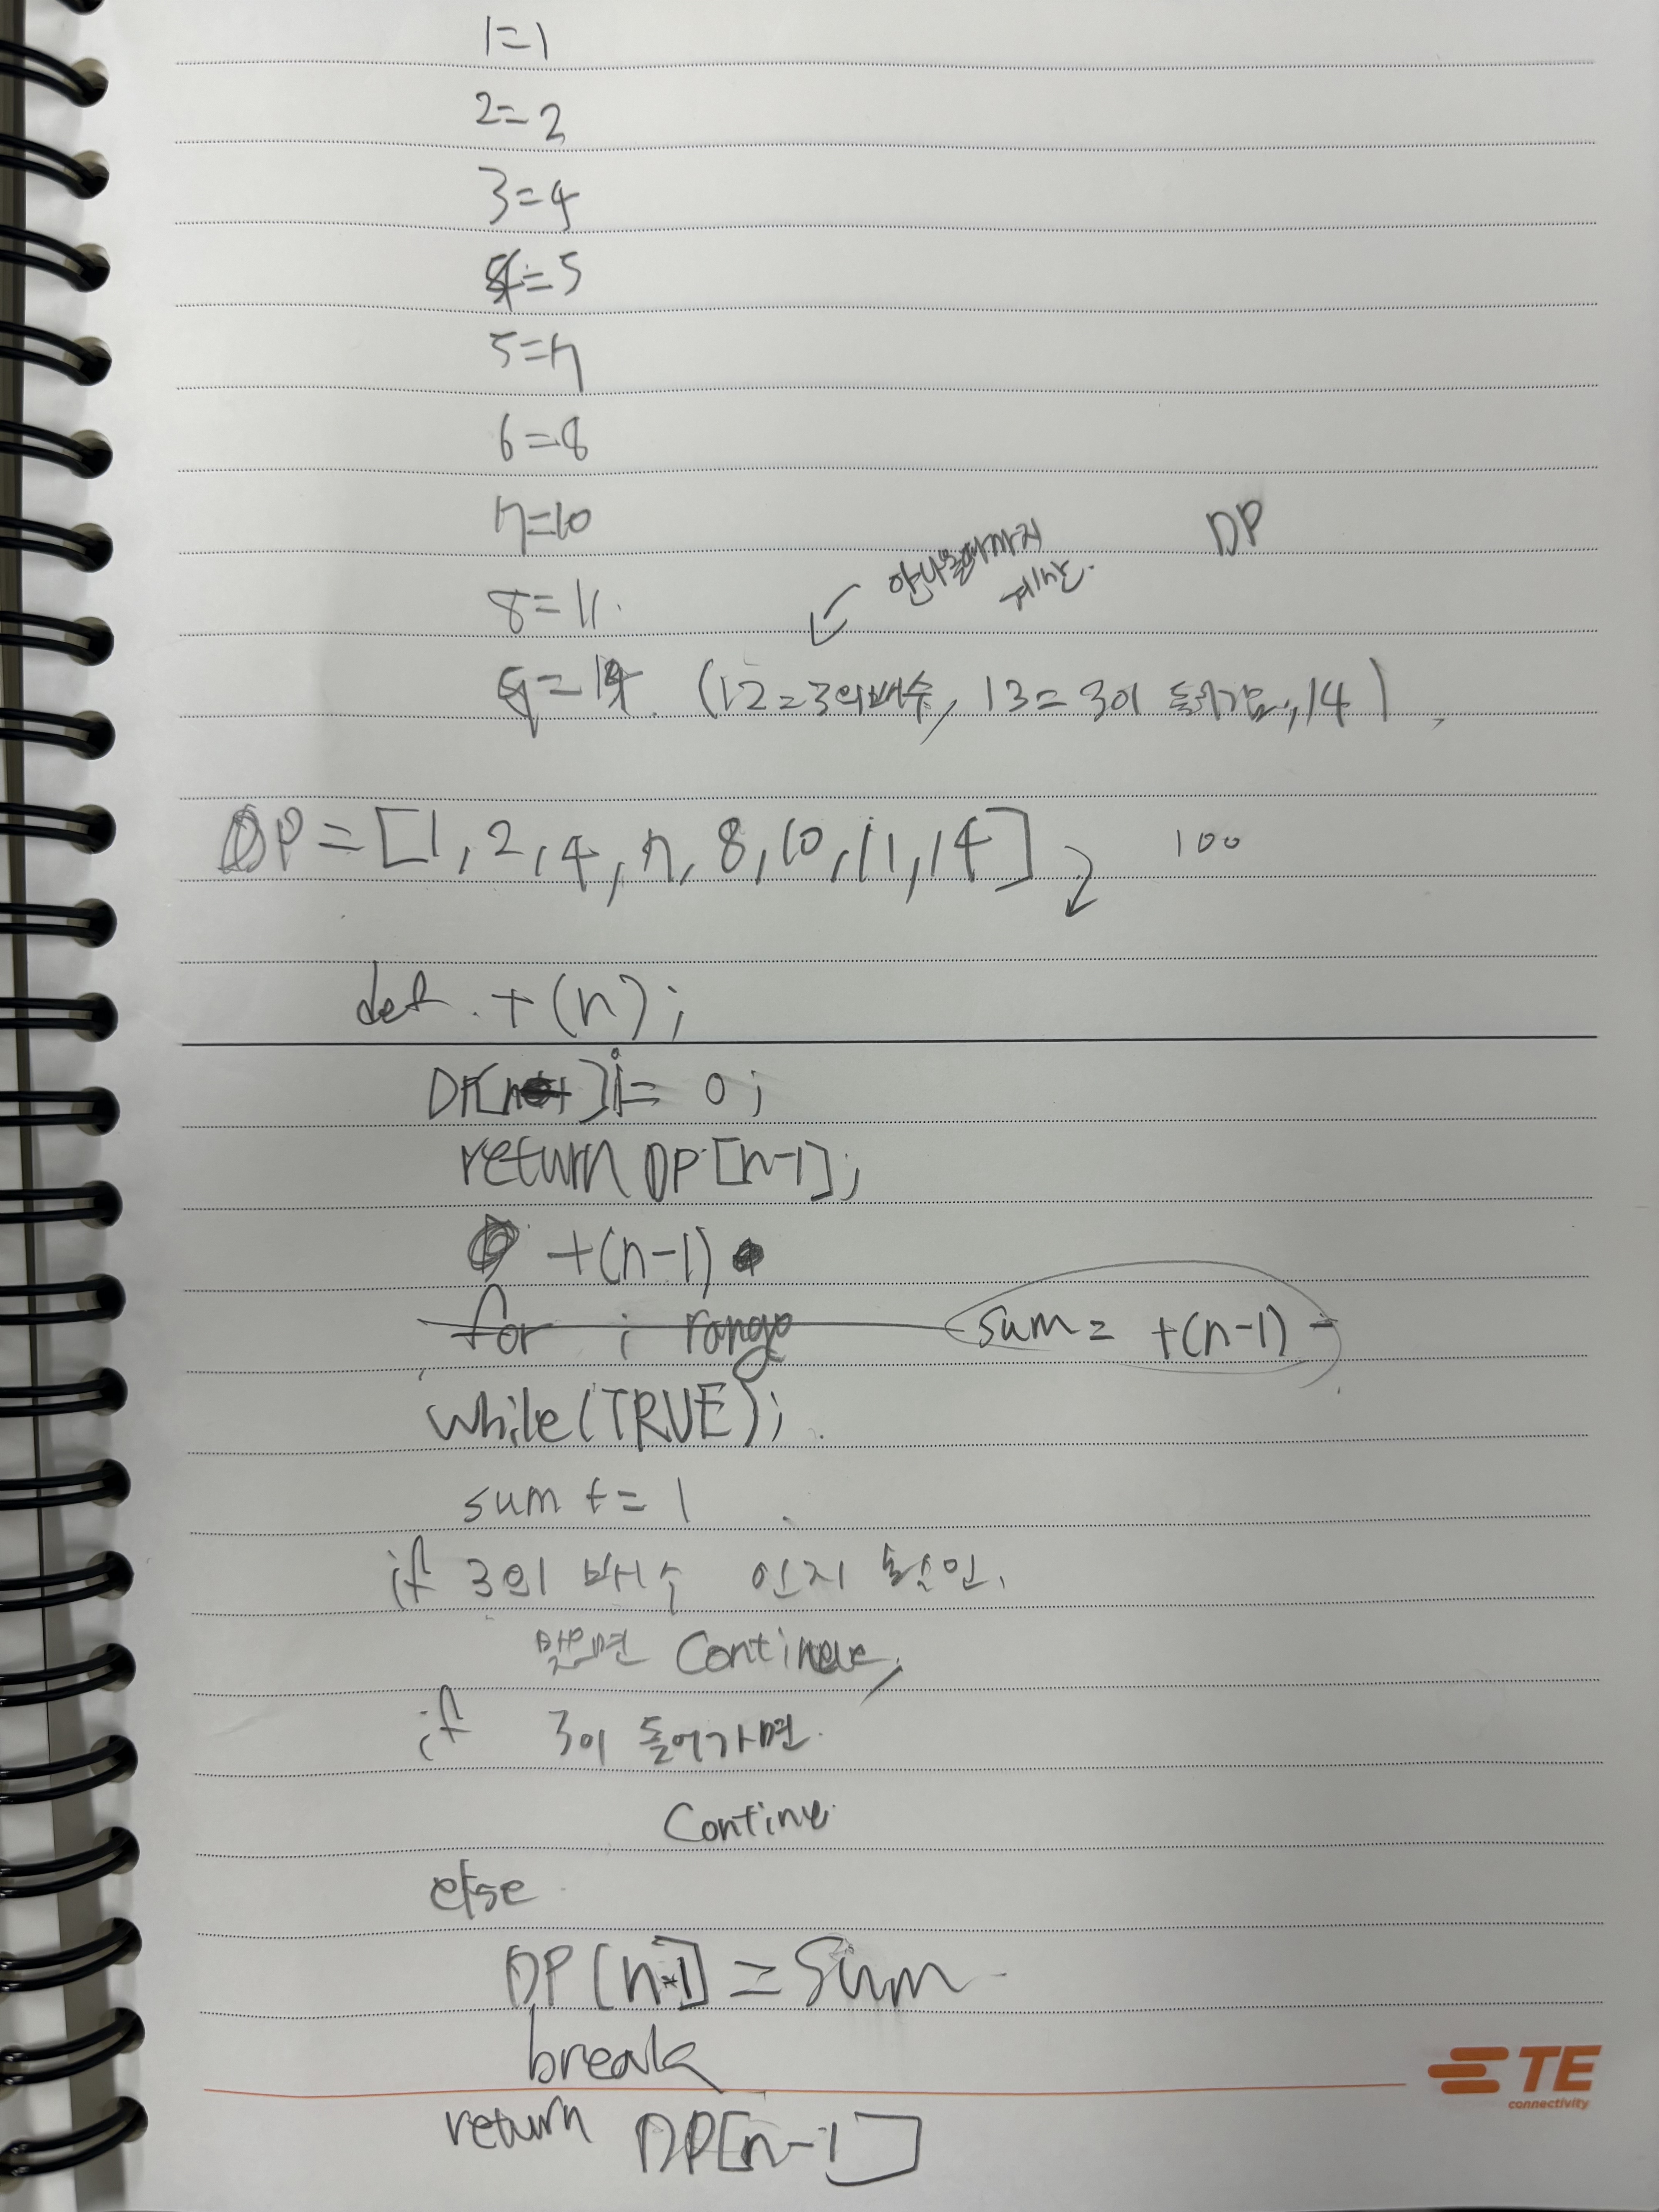 1=1
2=2
3=4
4=5
5=7
6=8
7=10
8=11.
9=14. (12=3의배수, 13=3이 들어감, 14)
안나올때까지
계산.
DP
DP=[1, 2, 4, 7, 8, 10, 11, 14]
100
def. t(n);
DP[n-1]!= 0;
return DP[n-1];
t(n-1)
for i range
sum= t(n-1)
while(TRUE);
sum += 1
if 3의 배수 인지 확인.
맞으면 Continue;
if 3이 들어가면.
Continue
else
DP[n-1]=Sum
break
return DP[n-1]
TE
connectivity